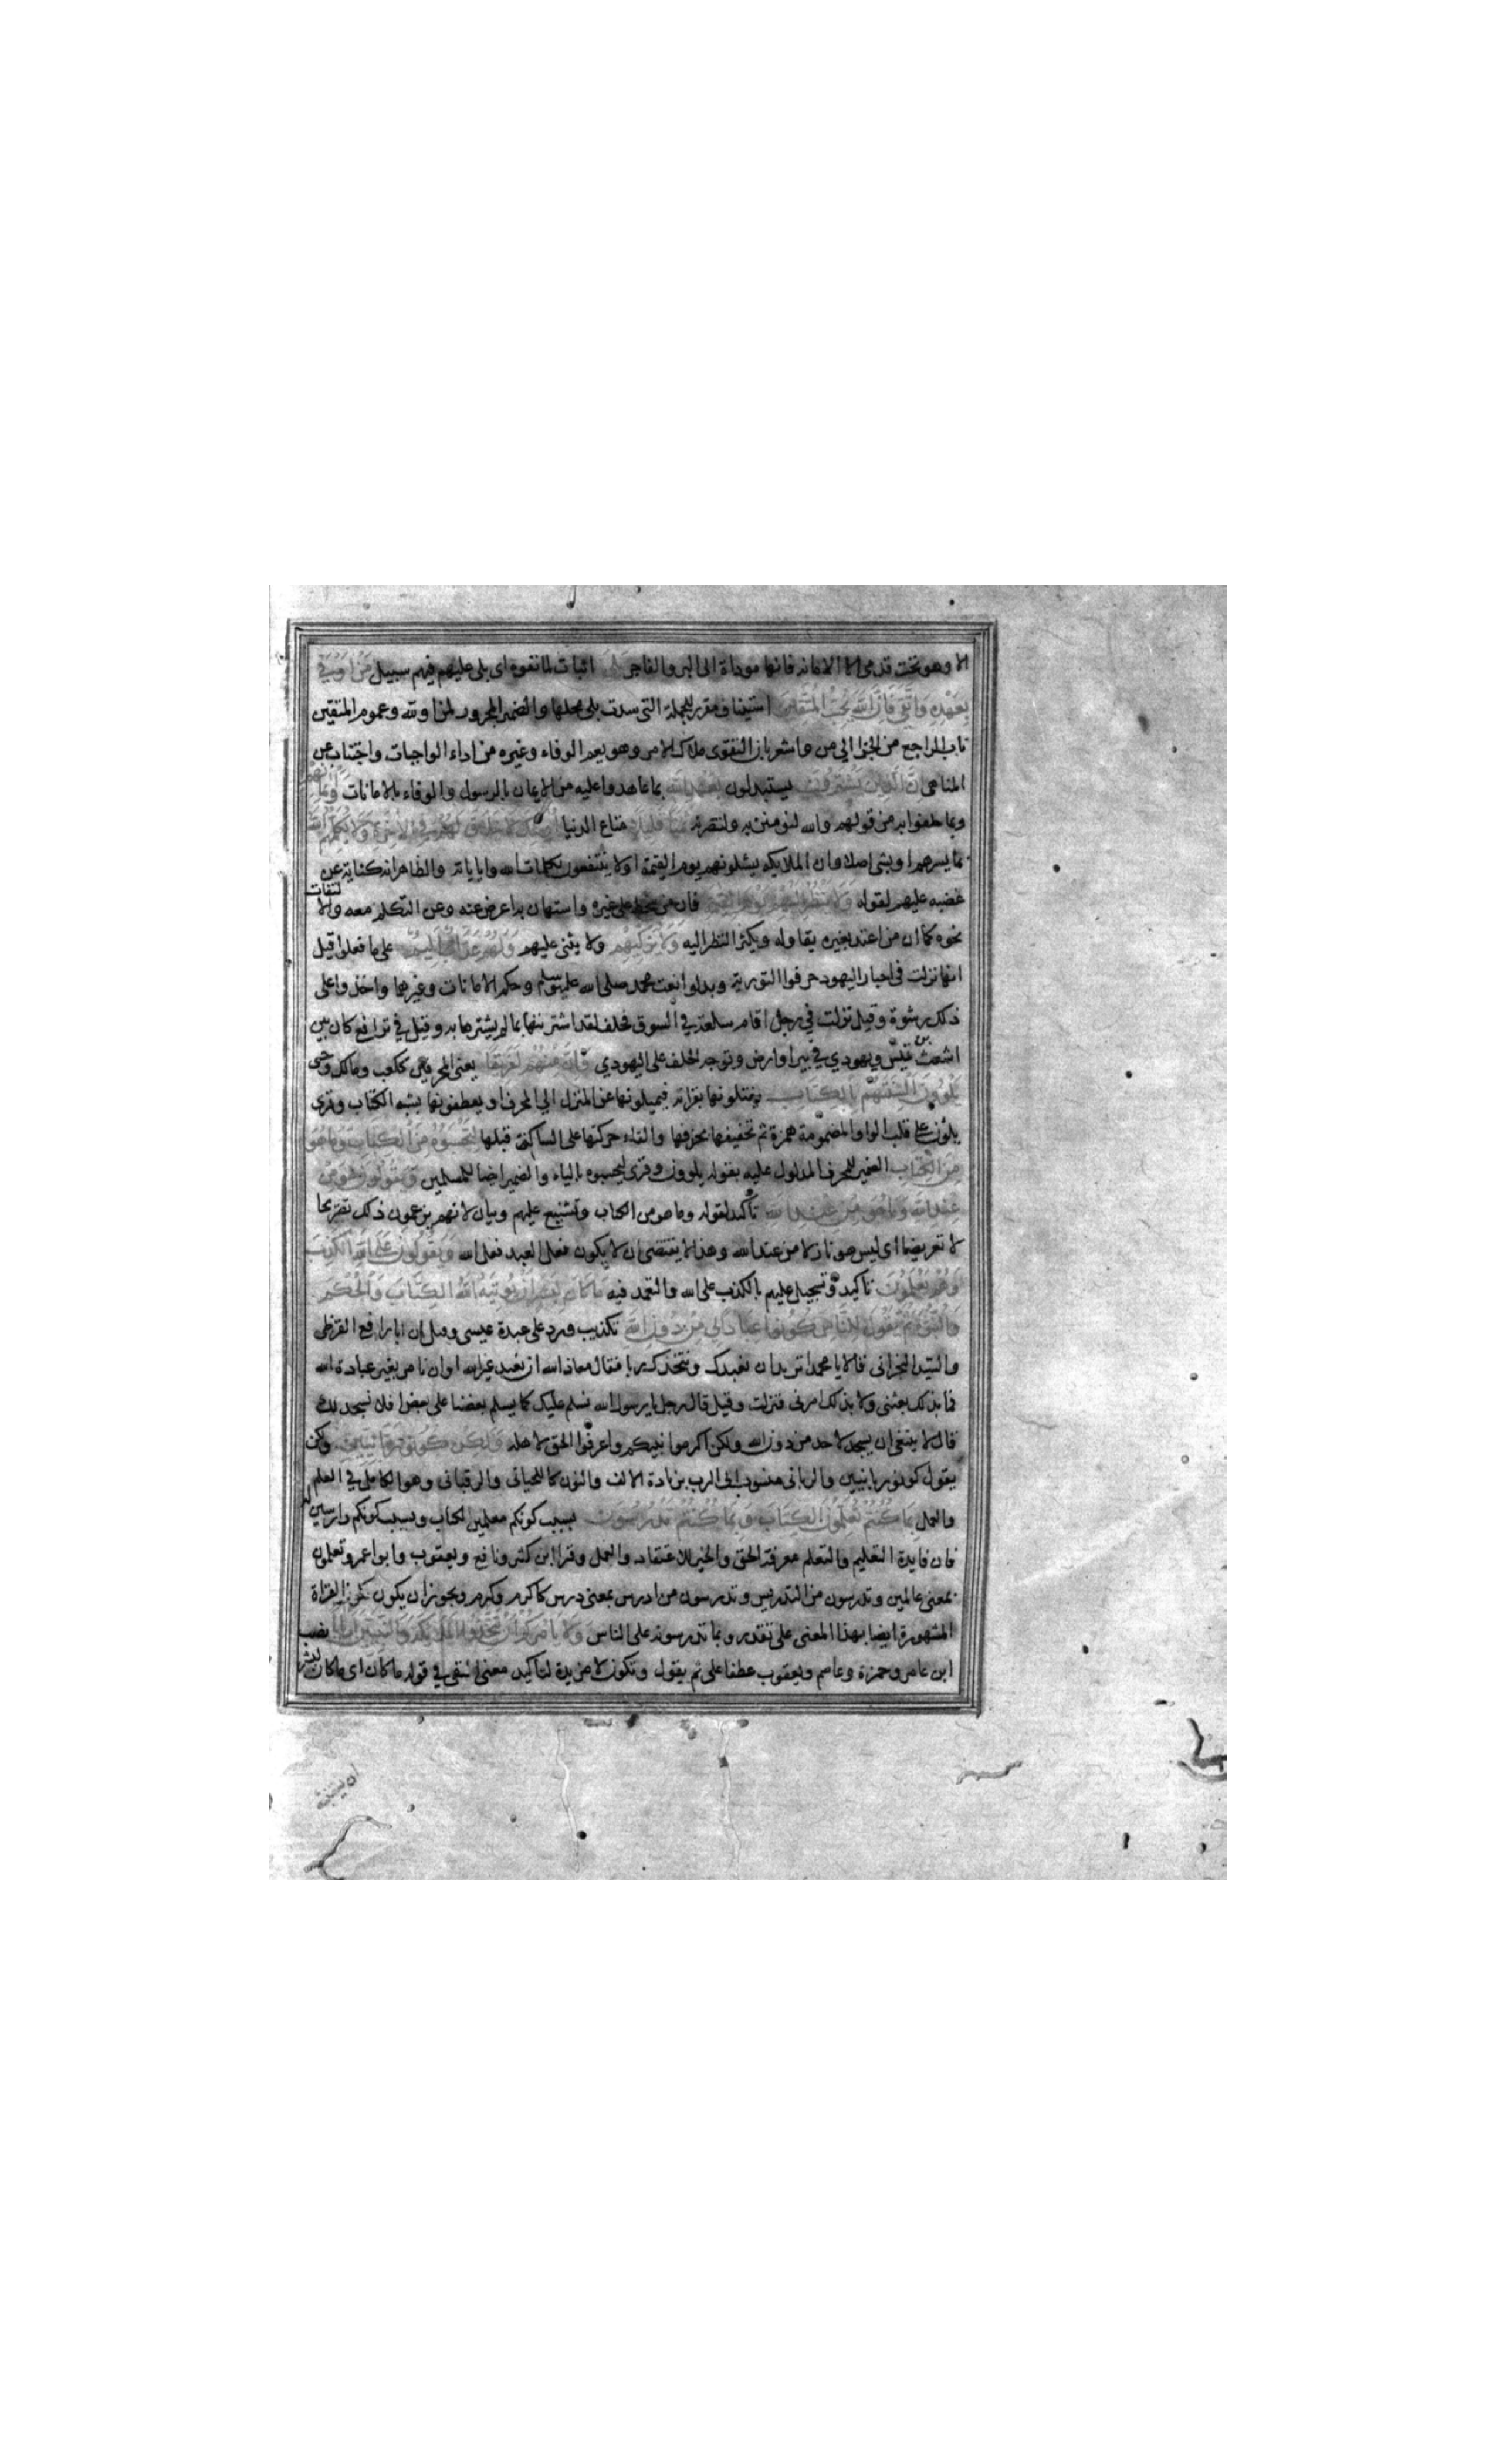 الا وهو تحت قدمي الا الامانه فانها موداة الى البر والفاجر بلى اثبات لما نفوه اى بلى عليهم فيهم سبيل من اوفى
بعهده واتقى فان الله يحب المتقين استيناف مقرر للجملة التى سدت بلى محلها والضمير المجرور لمن او لله وعموم المتقين
ناب الراجع من الجزا الى من واشعر بان التقوى ملاك الامر وهو يعم الوفاء وغيره من اداء الواجبات واجتناب عن
المناهى ان الذين يشترون يستبدلون بعهد الله بما عاهدوا عليه من الايمان بالرسول والوفاء بالامانات وايمانهم
وبما حلفوا به من قولهم والله لنومنن به ولننصرنه ثمنا قليلا متاع الدنيا اولئك لا خلاق لهم فى الاخرة ولا يكلمهم الله
بما يسرهم او بشى اصلا وان الملايكه يسئلونهم يوم القيمة او لا ينتفعون بكلمات الله واياياته والظاهر انه كناية عن
غضبه عليهم لقوله ولا ينظر اليهم يوم القيمة فان من سخط على غيره واستهان به اعرض عنه وعن التكلم معه والالتفات
نحوه كما ان من اعتد بغيره يقاوله ويكثر النظر اليه ولا يزكيهم ولا يثنى عليهم ولهم عذاب اليم على ما فعلوا قيل
انها نزلت فى احبار اليهود حرفوا التورية وبدلوا نعت محمد صلى الله عليه وسلم وحكم الامانات وغيرها واخذوا على
ذلك رشوة وقيل نزلت في رجل اقام سلعة في السوق فحلف لقد اشترىها بما لم يشترها به وقيل في ترافع كان بين
اشعث بن قيس ويهودي في بير او ارض وتوجه الحلف على اليهودي وان منهم لفريقا يعنى المحرفين ككعب ومالك وحى
يلوون السنتهم بالكتاب يفتلونها بقراته فيميلونها عن المنزل الي المحرف او يعطفونها بشبه الكتاب وقرى
يلون على قلب الواو المضمومة همزة ثم تخفيفها بحذفها والقاء حركتها على الساكن قبلها لتحسبوه من الكتاب وما هو
من الكتاب الضمير للمحرف المدلول عليه بقوله يلوون وقرى ليحسبوه بالياء والضمير ايضا للمسلمين ويقولون هو من
عند الله وما هو من عند الله تاكيد لقوله وما هو من الكتاب وتشنيع عليهم وبيان لانهم يزعمون ذلك تصريحا
لا تعريضا اى ليس هو نازلا من عند الله وهذا لا يقتضى ان لا يكون فعل العبد فعل الله ويقولون على الله الكذب
وهم يعلمون تاكيد وتسجيل عليهم بالكذب على الله والتعمد فيه ما كان لبشر ان يوتيه الله الكتاب والحكم
والنبوة ثم يقول للناس كونوا عبادا لى من دون الله تكذيب ورد على عبدة عيسى وقيل ان ابا رافع القرظى
والسيد النجرانى قالا يا محمد اتريد ان نعبدك ونتخذك ربا فقال معاذ الله ان نعبد غير الله او ان نامر بغير عبادة الله
فما بذلك بعثنى ولا بذلك امرنى فنزلت وقيل قال رجل يا رسول الله نسلم عليك كما يسلم بعضنا على بعض افلا نسجد لك
قال لا ينبغى ان يسجد لاحد من دون الله ولكن اكرموا نبيكم واعرفوا الحق لاهله ولكن كونوا ربانيين ولكن
يقول كونوا ربانيين والربانى منسوب الى الرب بزيادة الالف والنون كاللحيانى والرقبانى وهو الكامل في العلم
والعمل بما كنتم تعلمون الكتاب وبما كنتم تدرسون بسبب كونكم معلمين الكتاب وبسبب كونكم دارسين له
فان فايدة التعليم والتعلم معرفة الحق والخير للاعتقاد والعمل وقرا ابن كثير ونافع ويعقوب وابو عمرو تعلمون
بمعنى عالمين وتدرسون من التدريس وتدرسون من ادرس بمعنى درس كاكرم وكرم ويجوز ان يكون القراة
المشهورة ايضا بهذا المعنى على تقدير وبما تدرسونه على الناس ولا يامركم ان تتخذوا الملايكة والنبيين اربابا نصبه
ابن عامر وحمزة وعاصم ويعقوب عطفا على ثم يقول وتكون لا مزيدة لتاكيد معنى النفى في قوله ما كان اى ما كان لبشر
ان يستنبئه